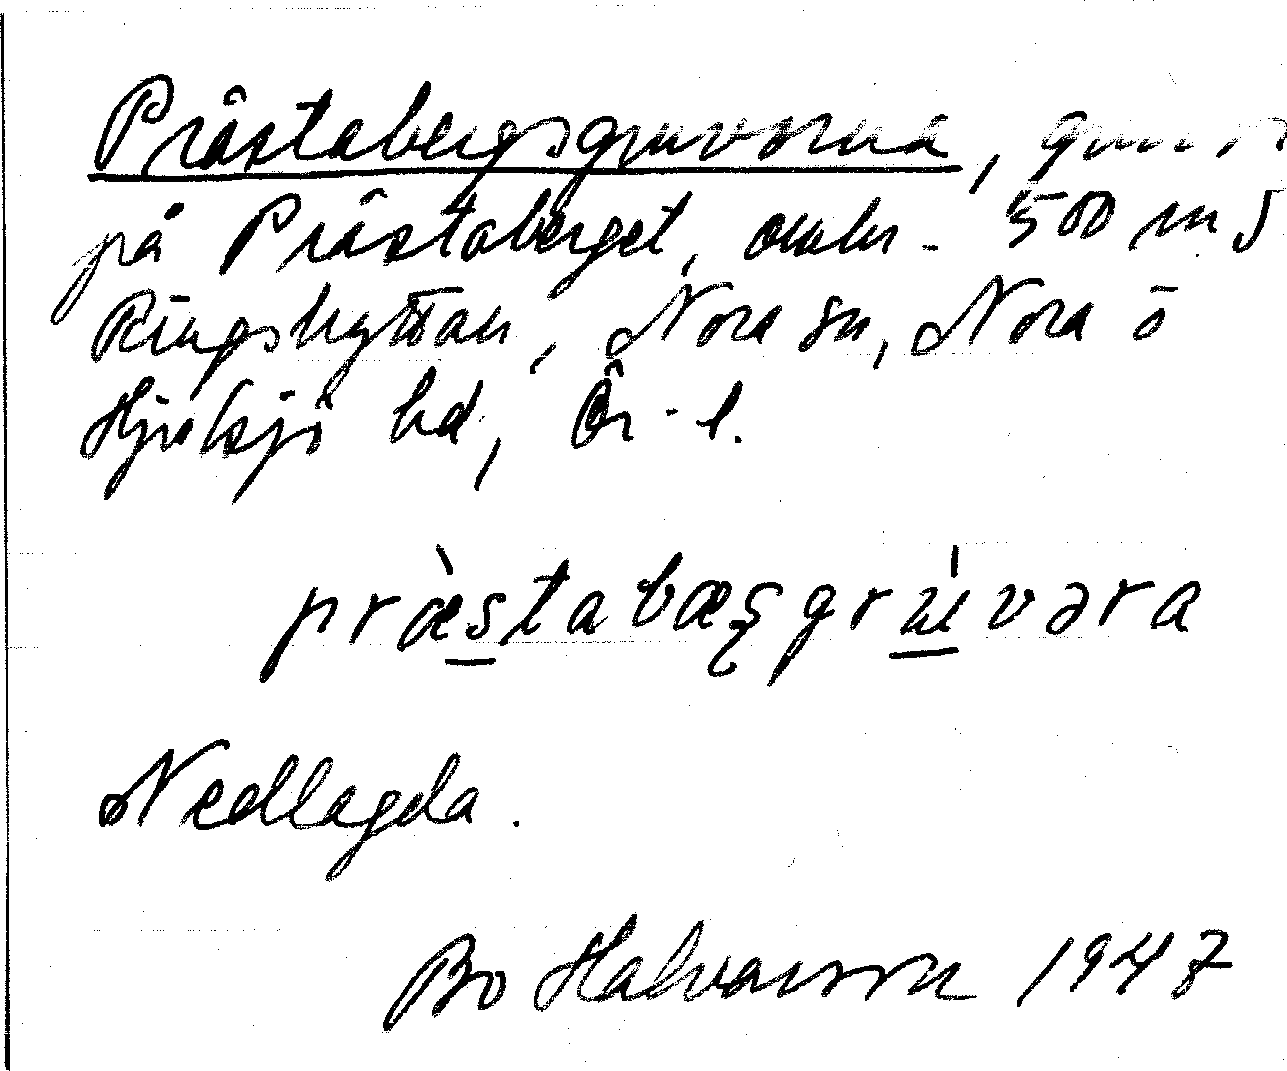 Prästabergsgruvorna, gruvor
på Prästaberget, omkr. 500 m S
Ringshyttan, Nora sn, Nora o
Hjulsjö bd, Ör. l.
præstabæsgruvəra
Nedlagda.
Bo Halvarsson 1947